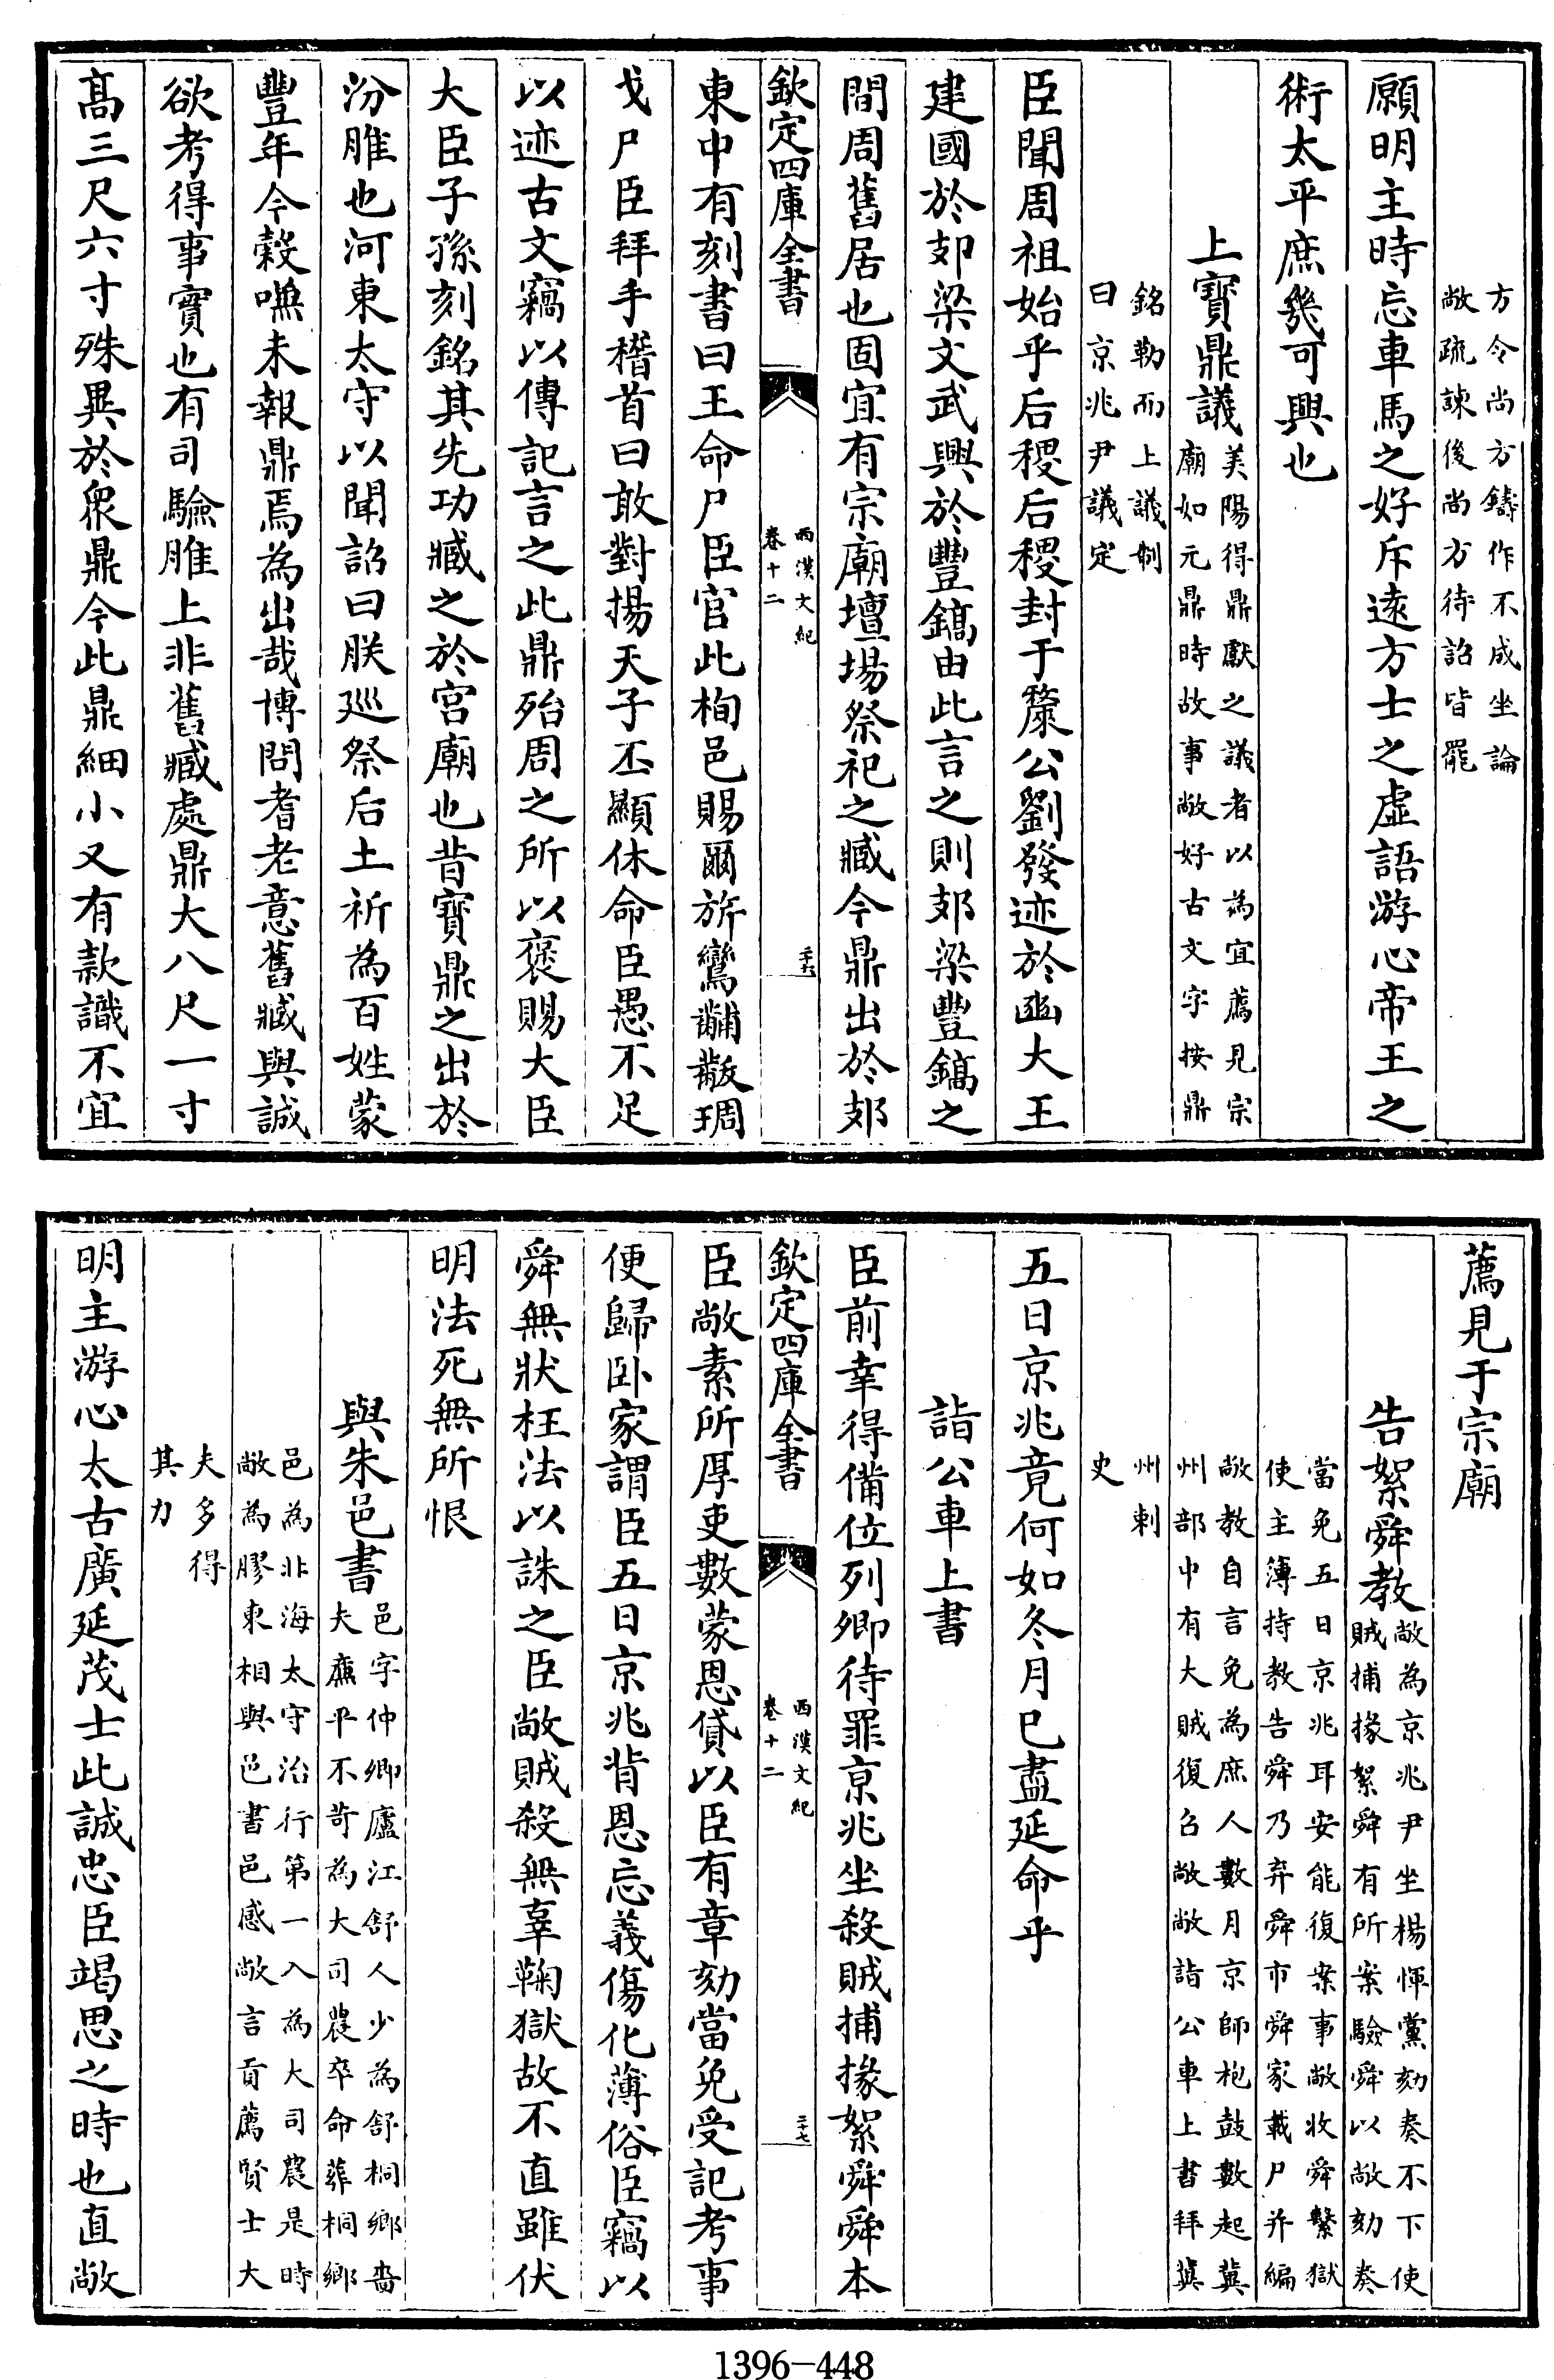 方今尚方鑄作不成坐論
敞疏諫後尚方待詔皆罷
願明主時忘車馬之好斥逺方士之虚語游心帝王之
術太平庶幾可興也
上寶鼎議
美陽得鼎獻之議者以為宜薦見宗
廟如元鼎時故事敞好古文字按鼎
銘勒而上議制
曰京兆尹議定
臣聞周祖始乎后稷后稷封于斄公劉發迹於豳大王
建國於郊梁文武興於豐鎬由此言之則郊梁豐鎬之
間周舊居也固宜有宗廟壇場祭祀之臧今鼎出於郊
欽定四庫全書
西漢文紀
卷十二
二十六
東中有刻書曰王命尸臣官此栒邑賜爾旂鸞黼黻琱
戈尸臣拜手稽首曰敢對揚天子丕顯休命臣愚不足
以迹古文竊以傳記言之此鼎殆周之所以褒賜大臣
大臣子孫刻銘其先功臧之於宫廟也昔寶鼎之出於
汾脽也河東太守以聞詔曰朕廵祭后土祈為百姓蒙
豐年今穀嗛未報鼎焉為出哉博問耆老意舊臧與誠
欲考得事實也有司驗脽上非舊臧處鼎大八尺一寸
髙三尺六寸殊異於衆鼎今此鼎細小又有款識不宜
薦見于宗廟
告絮舜教
敞為京兆尹坐楊惲黨劾奏不下使
賊捕掾絮舜有所案驗舜以敞劾奏
當免五日京兆耳安能復案事敞收舜繫獄
使主簿持教告舜乃弃舜市舜家載尸并編
敞教自言免為庶人數月京師枹鼓數起冀
州部中有大賊復召敞敞詣公車上書拜冀
州刺
史
五日京兆竟何如冬月已盡延命乎
詣公車上書
臣前幸得備位列卿待罪京兆坐殺賊捕掾絮舜舜本
欽定四庫全書
西漢文紀
卷十二
二十七
臣敞素所厚吏數蒙恩貸以臣有章劾當免受記考事
便歸卧家謂臣五日京兆背恩忘義傷化薄俗臣竊以
舜無狀枉法以誅之臣敞賊殺無辜鞠獄故不直雖伏
明法死無所恨
與朱邑書
邑字仲卿廬江舒人少為舒桐鄉嗇
夫廉平不苛為大司農卒命葬桐鄉
邑為北海太守治行第一入為大司農是時
敞為膠東相與邑書邑感敞言貢薦賢士大
夫多得
其力
明主游心太古廣延茂士此誠忠臣竭思之時也直敞
1396-448